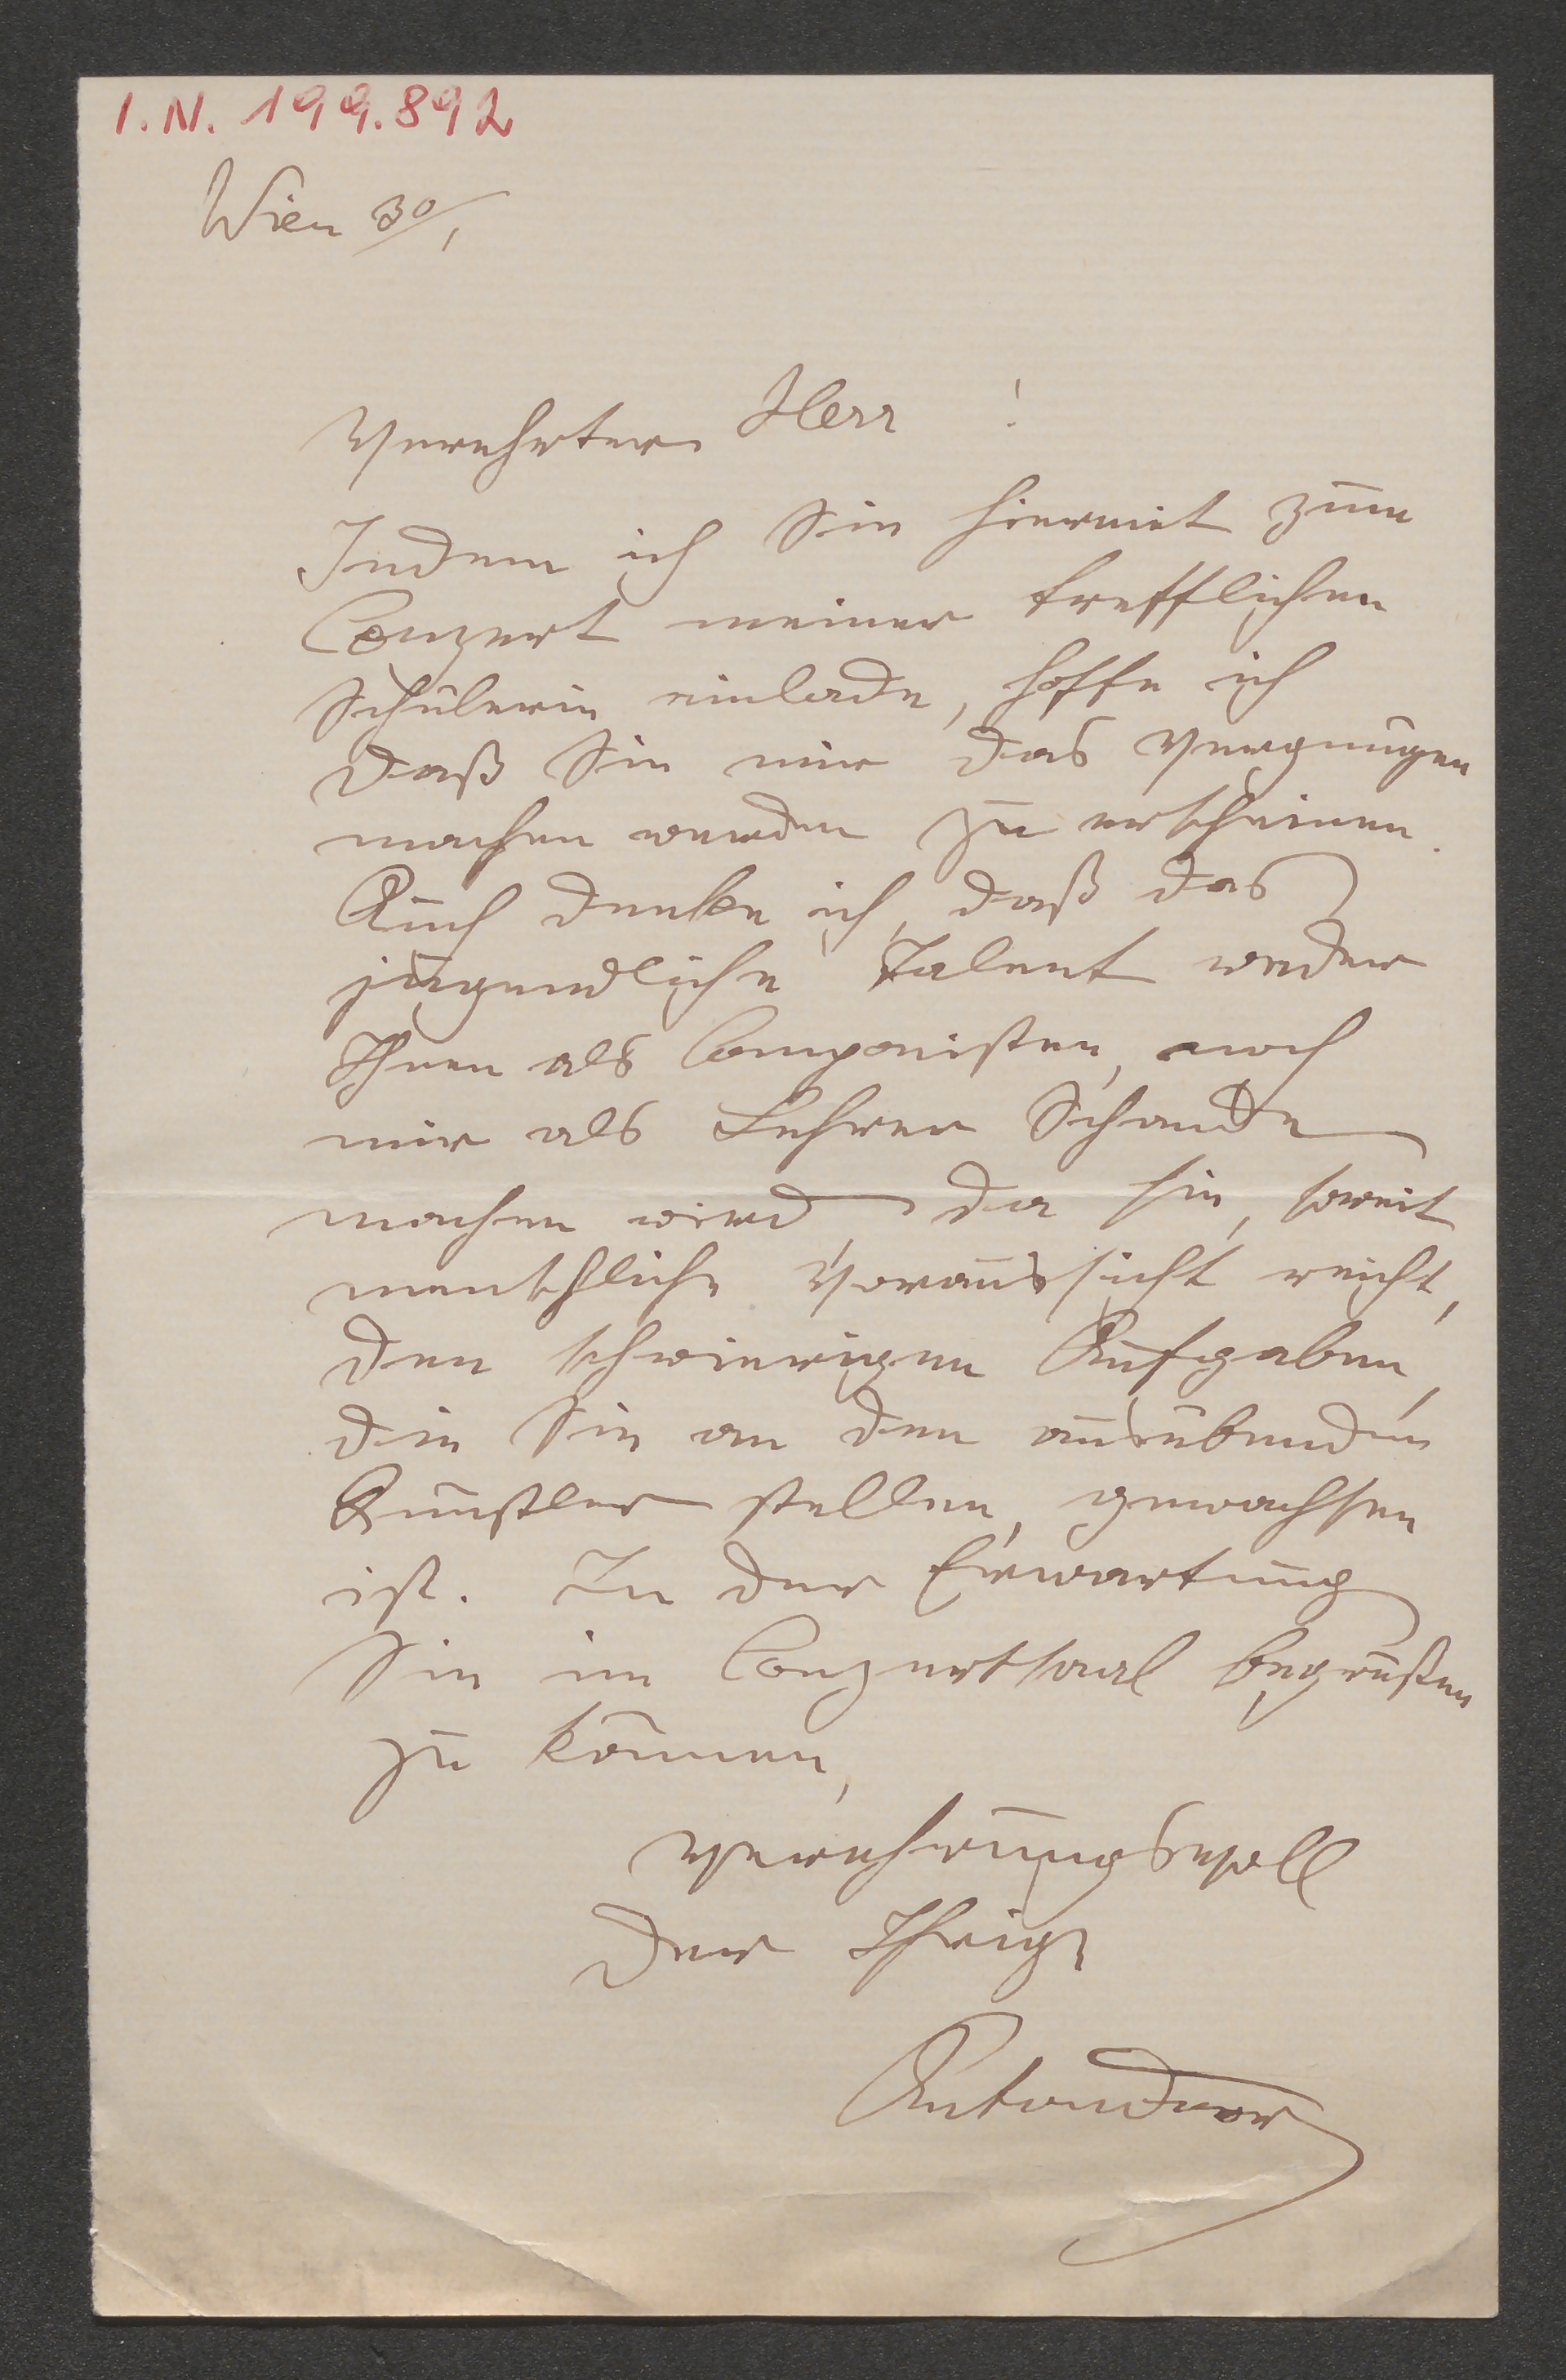 I. N. 199.892
Wien 30/1
Verehrter Herr !
Indem ich Sie hiermit zum
Conzert meiner trefflichen
Schülerin einlade, hoffe ich
daß Sie mir das Vergnügen
machen werden zu erscheinen.
Auch denke ich, daß das
jugendliche Talent weder
Ihnen als Componisten, noch
mir als Lehrer Schande
machen wird, da sie, soweit
menschliche Voraussicht reicht,
den schwierigen Aufgaben,
die Sie an den ausübenden
Künstler stellen, gewachsen
ist. In der Erwartung
Sie im Conzertsaal begrüßen
zu können,
verehrungsvoll
der Ihrige
Anton Door